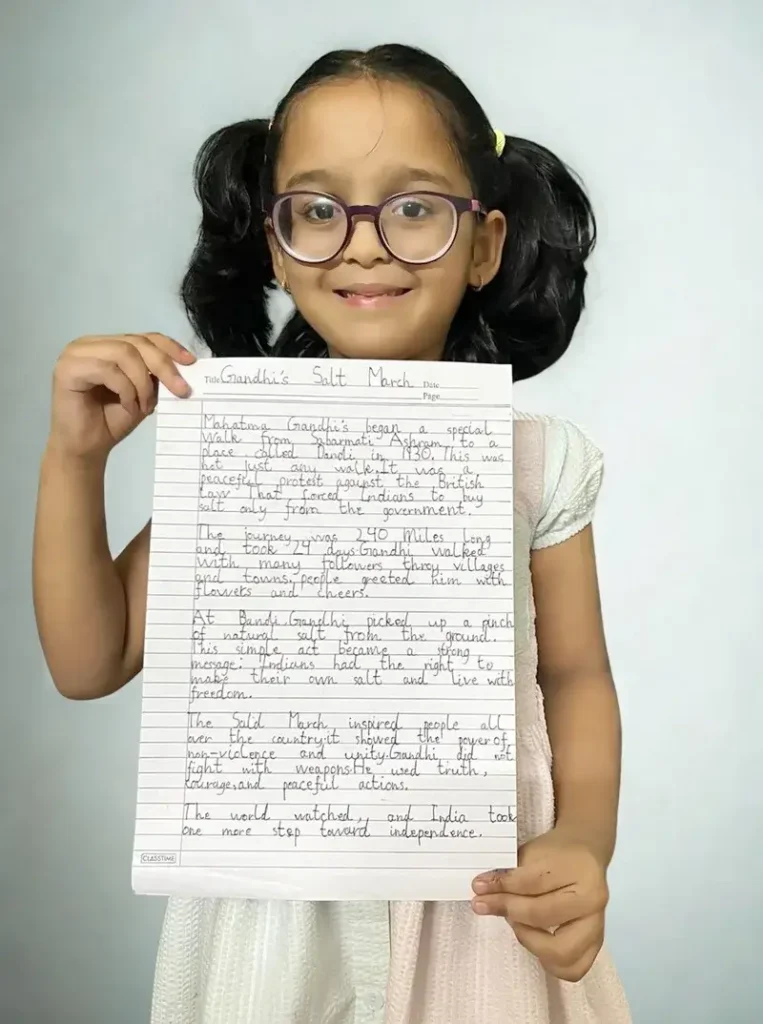 Title Gandhi's Salt March Date
Page
Mahatma Gandhi's began a special
Walk from Sabarmati Ashram to a
place called Dandi in 1930. This was
not just any walk. It was a
peaceful protest against the British
Law That forced Indians to buy
salt only from the government.
The journey was 240 Miles Long
and took 24 days. Gandhi walked
With many followers throy villages
and towns. people greeted him with
flowers and cheers.
At Dandi, Gandhi picked up a pinch
of natural salt from the ground.
This simple act became a strong
message: Indians had the right to
make their own salt and live with
freedom.
The Sald March inspired people all
over the country. it showed the power of
non-violence and unity. Gandhi did not
fight with weapons. He used truth,
courage, and peaceful actions.
The world watched, and India took
one more step toward independence.
CLASSTIME